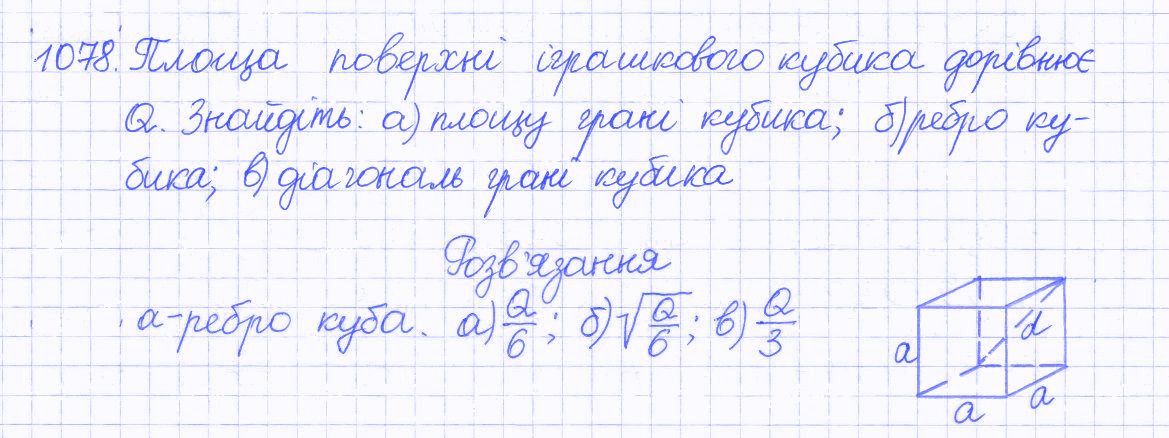 1078. Площа поверхні іграшкового кубика дорівнює
Q. Знайдіть: а) площу грані кубика; б) ребро ку-
бика; в) діагональ грані кубика
Розв'язання
a - ребро куба. а) Q/6; б) √(Q/6); в) Q/3
d
a
a
a